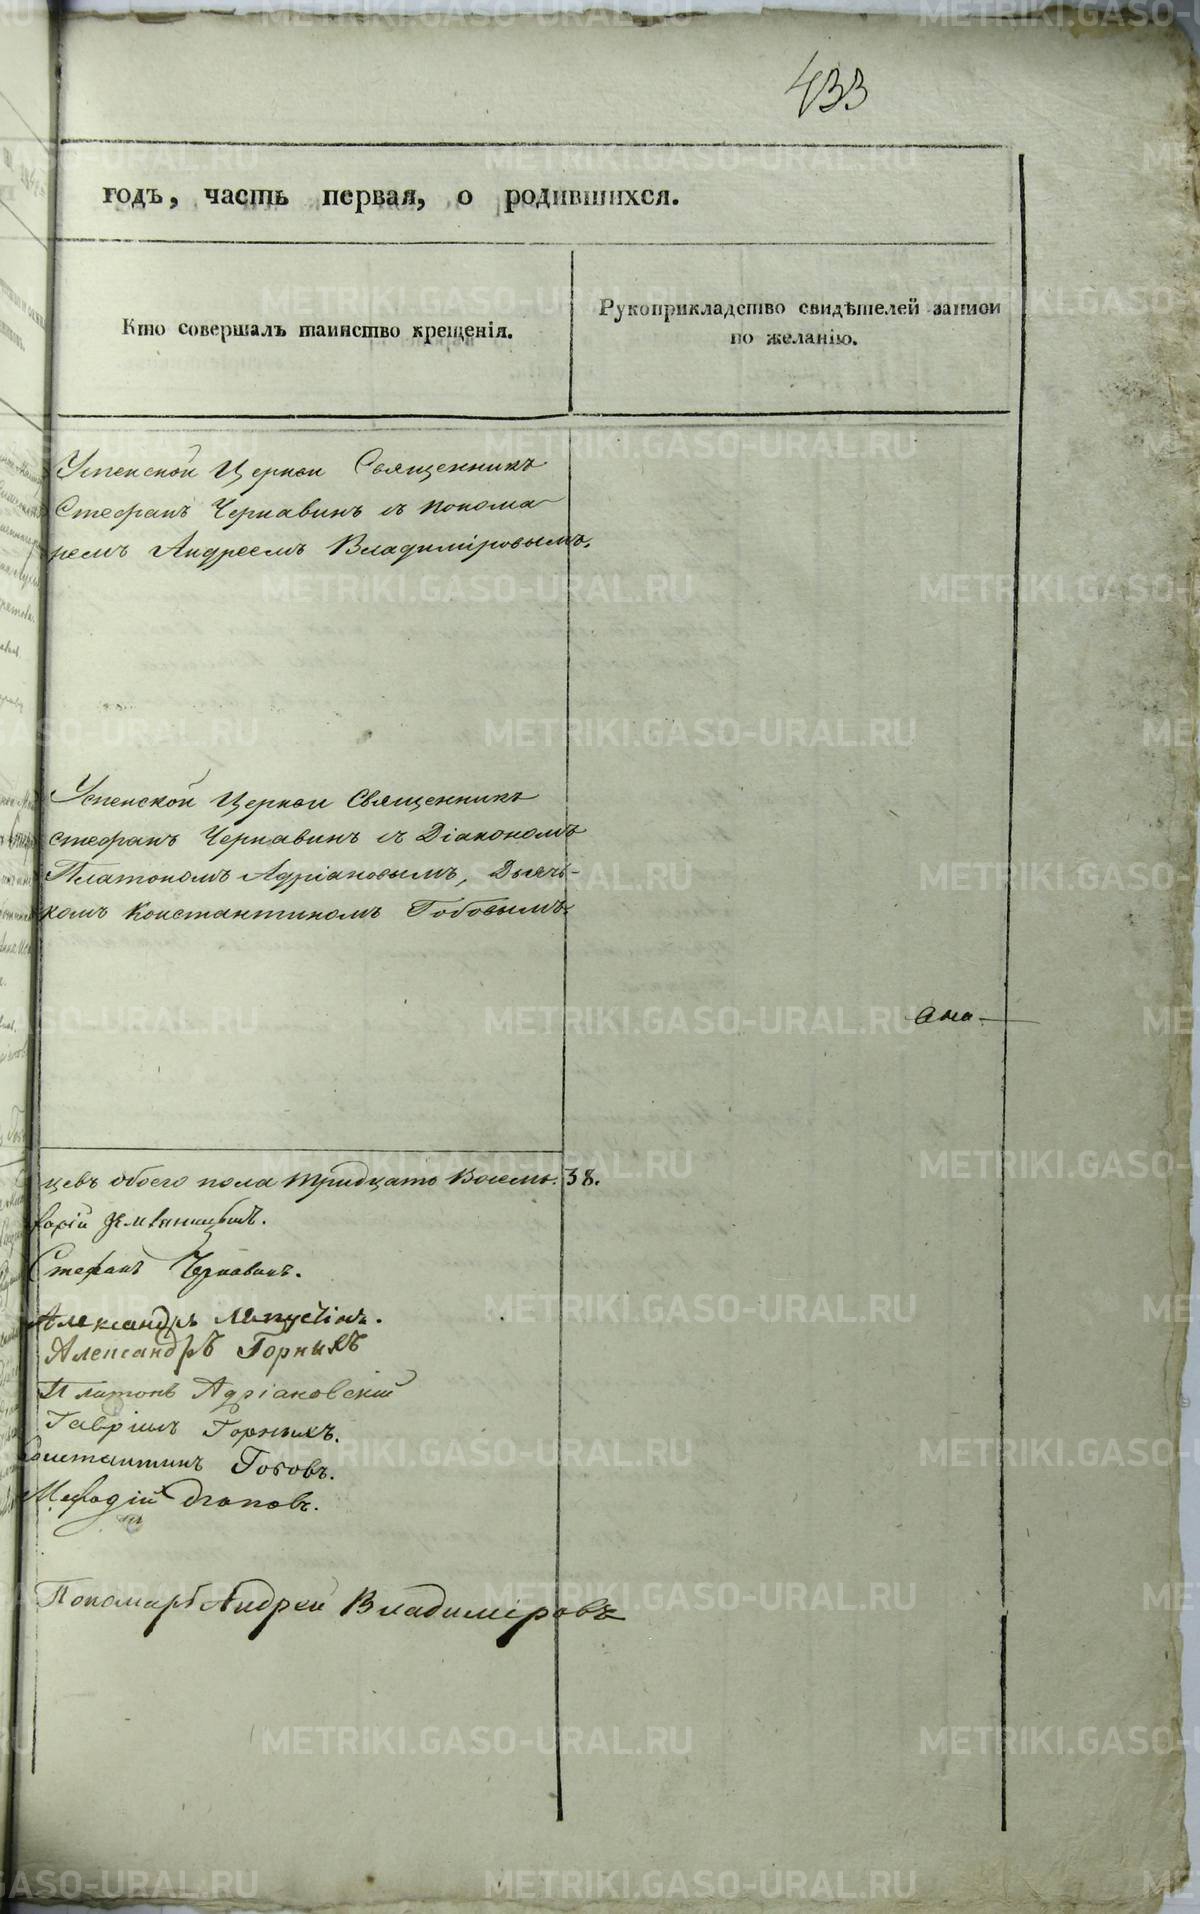 433
годъ, часть первая, о родившихся.
Кто совершалъ таинство крещенія.
Рукоприкладство свидѣтелей записи
по желанію.
Успенской Церкви Священникъ
Стефанъ Чернавинъ съ понома
ремъ Андреемъ Владиміровымъ.
Успенской Церкви Священникъ
стефанъ Чернавинъ съ Діакономъ
Платономъ Адріановымъ, Дьячь-
комъ Константиномъ Гобовымъ.
цевъ обоего пола тридцать восемь. 38.
Стефанъ Чернавинъ.
Александръ
Александръ Горныхъ
Платонъ Адріановскій
Гавріилъ Горныхъ.
Константинъ Гобовъ.
Мефодій
Пономарь Андрей Владиміровъ
METRIKI.GASO-URAL.RU